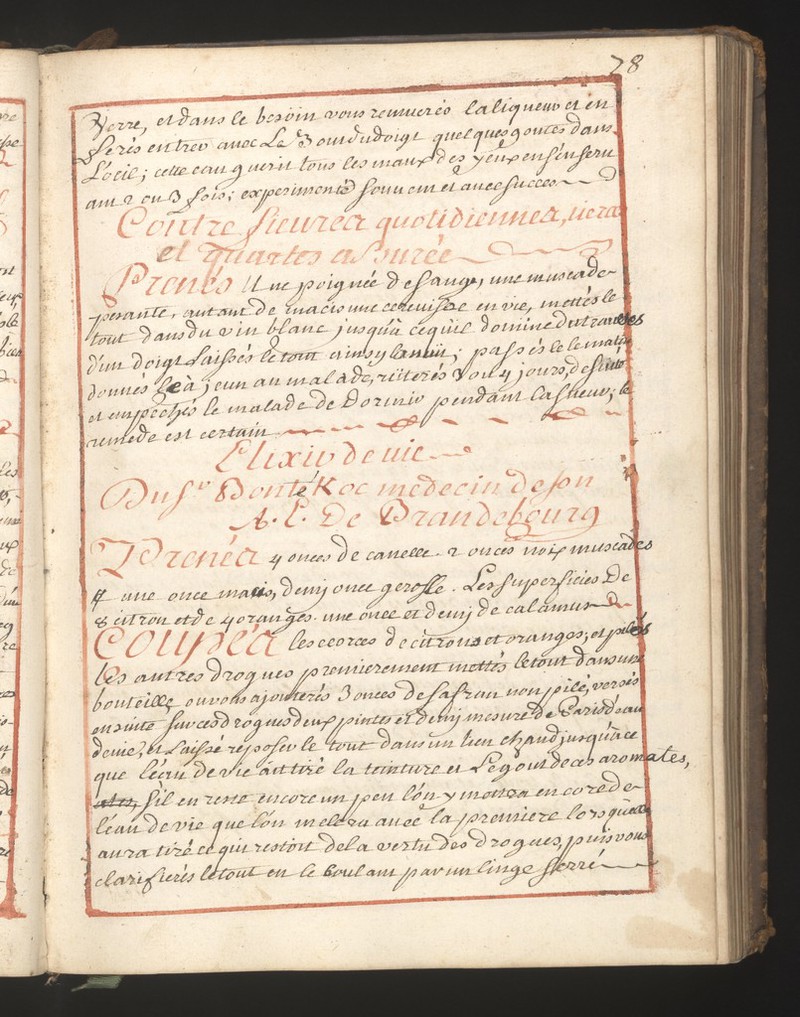 78
Verre, et dans le besoin vous remueréo la liqueur et en
ferés entrer avec Le 3 om du doigt quelques goutes dans
L'oeil; cette eau guerit tous les maux des yeux en s'en seru
ant 2 ou 3 fois; experimenté souvent et avec succes
Contre fieures quotidiennes, tierces
et quartes assurée
Prenés Une poignée de sauge, une muscade
pesante, autant de macis une ecreuisse en vie, mettés le
tout dans du vin blanc jusqu'a cequ'il domine dutravers
d'un doigt Laissés le tout ainsy la nuit; passés le le matin
donnés le a jeun au malade, reiterés 3 ou 4 jours, de suite
et empechés le malade de Dormir pendant la sueur; le
remede est certain
Elixir de vie
Du Sr Bonté Koc medecin de son
A. E. De Brandebourg
Prenés 4 onces de canelle. 2 onces noix muscades
une once macis, demj once gerofle. Les superficies De
8 citron et de 4 oranges. une once et demj de calamus
Coupés les ecorces de citrons et oranges; et pilés
les autres drogues premierement mettés le tout dans une
bouteille ou vous ajouterés 3 onces de safran non pilé, versés
ensuite sur ces drogues deux pintes et demj mesure de Paris d'eau
devie, et Laissé reposer le tout dans un lieu chaud jusqu'a ce
que l'eau de vie ait tiré la teinture et Le gout de ces aromates,
ates, s'il en reste encore un peu l'on y mettra encore de
l'eau de vie que l'on melera avec la premiere lorsqu'elle
aura tiré ce qui restoit dela vertu des drogues, puis vous
clarifierés le tout en le coulant par un linge serré